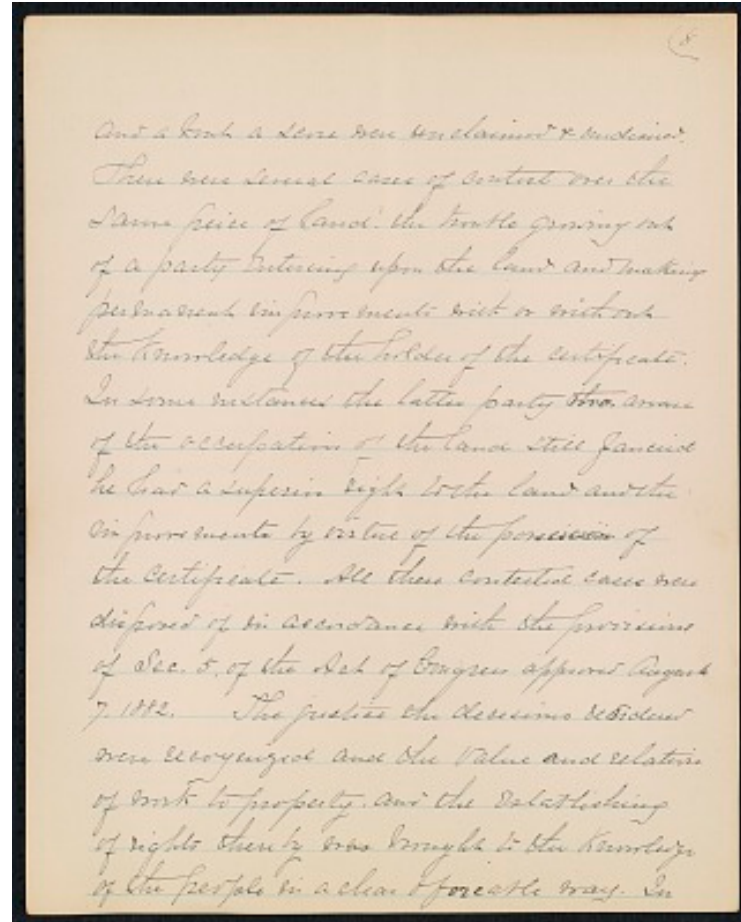 (8
and about a score were unclaimed & undesired.
There were several cases of contest over the
same peice of land: the trouble growing out
of a party entering upon the land and making
permanent improvements with or without
the knowledge of the holder of the certificate.
In some instances the latter party tho. aware
of the occupation of the land still fancied
he had a superior right to the land and the
improvements by virtue of the possession of
the certificate. All these contested cases were
disposed of in accordance with the provisions
of Sec. 5. of the Act of Congress approved August
7. 1882. The justice the decisions rendered
were recognized and the value and relation
of work to property. and the establishing
of rights thereby was brought to the knowledge
of the people in a clear & forceable way. In